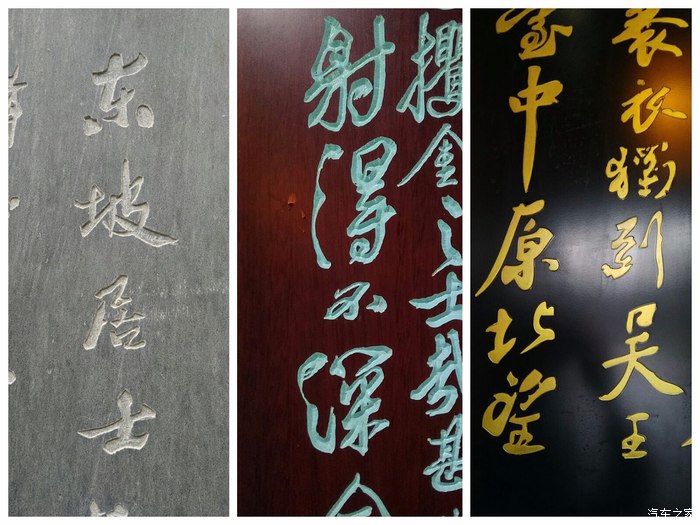 东坡居士
攫金之士哉
射得不深
衣獨到吳王
中原北望
汽车之家